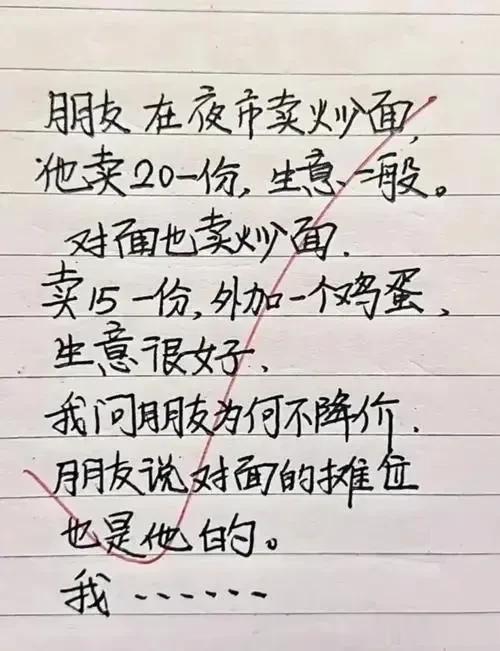 朋友在夜市卖炒面,
他卖20一份,生意一般。
对面也卖炒面.
卖15一份,外加一个鸡蛋、
生意很好.
我问朋友为何不降价.
朋友说对面的摊位
也是他的。
我……